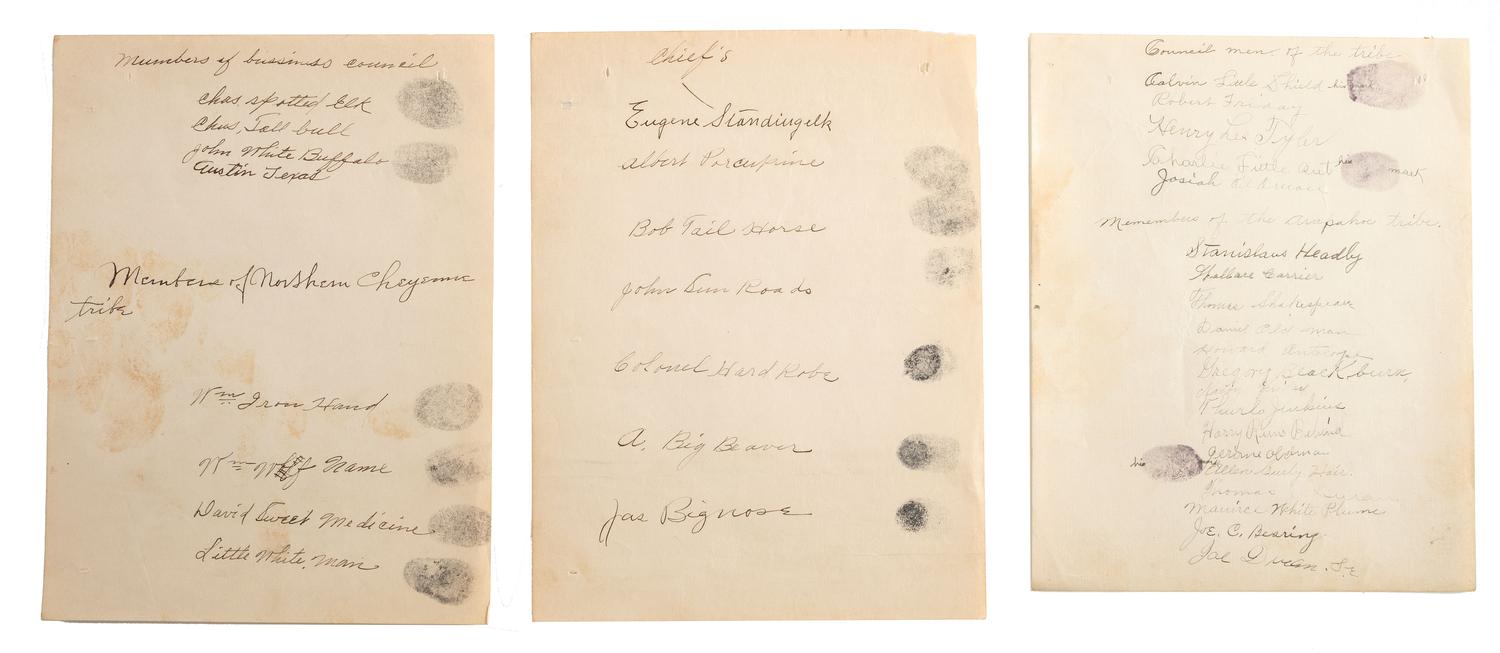 Mumbers of bussiness council
chas. spotted Elk
Chas. Tall bull
john White Buffalo
Austin Texas
Members of Northern Cheyenne
tribe
Wm Iron Hand
Wm Wolf Name
David Sweet Medicine
Little White. Man
Chief's
Eugene Standingelk
albert Porcupine
Bob Tail Horse
john Sun Roads
Colonel Hard Robe
A. Big Beaver
Jas Bignose
Council men of the tribe
Calvin Little Shield his mark
Robert Friday
Henry Lee Tyler
Charlie Little Ant his mark
Josiah
Memembers of the arapahoe tribe.
Stanislaus Headly
Wallace Carrier
Thomas Shakespeare
Daniel Old man
Howard Antelope
Gregory Blackburn,
Jenkins
Harry Runs Behind
his Jerome Oldman
Allen Curly Hair.
Thomas
Maurice White Plume
Joe. C. Bearing.
Joe Duran. Sr